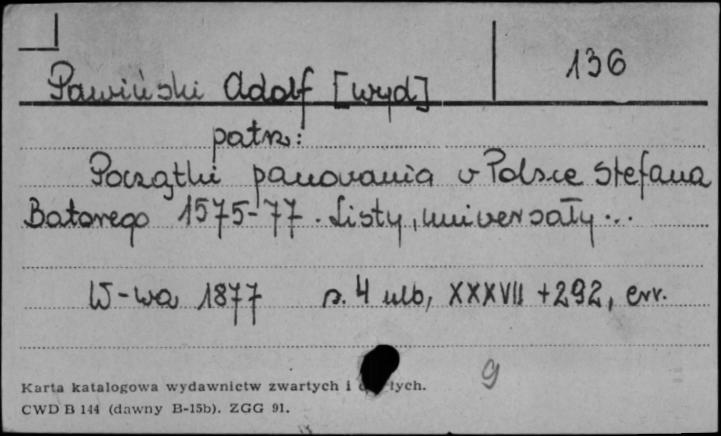 136
Pawiński Adolf [wyd]
patrz:
Początki panowania w Polsce Stefana
Batorego 1575-77. Listy, uniwersały...
W-wa 1877 s. 4 nlb, XXXVII + 292, err.
9
Karta katalogowa wydawnictw zwartych i
CWD B 144 (dawny B-15b). ZGG 91.